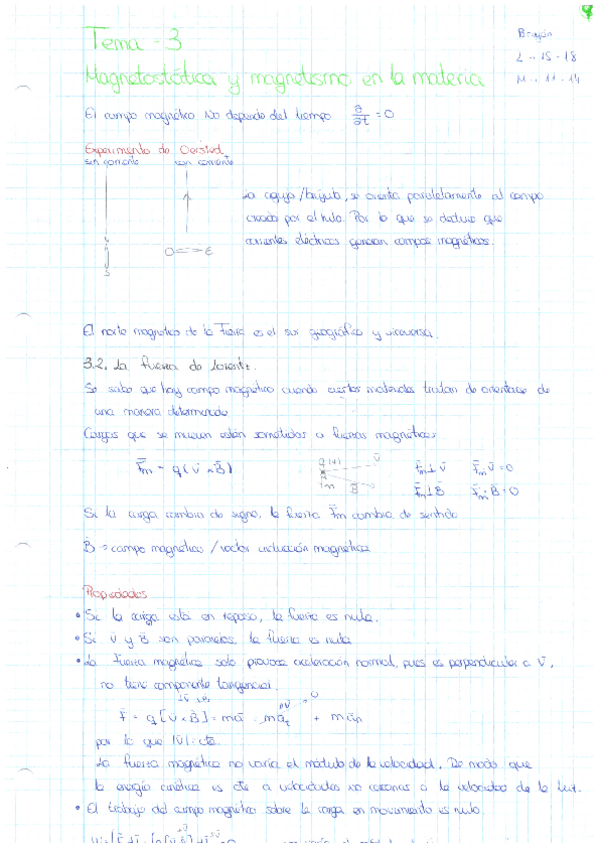 Tema - 3
Magnetostática y magnetismo en la materia
L -- 15 - 18
M -- 11 - 14
El campo magnético No depende del tiempo ∂/∂t = 0
Experimento de Oersted
sin corriente con corriente
La aguja/brújula, se orienta paralelamente al campo
creado por el hilo. Por lo que se deduce que
corrientes eléctricas generan campos magnéticos.
El norte magnético de la Tierra es el sur geográfico y viceversa.
3.2. La fuerza de Lorentz.
Se sabe que hay campo magnético cuando ciertos materiales tratan de orientarse de
una manera determinada
Cargas que se mueven están sometidas a fuerzas magnéticas
F̄m = q(v̄ ∧ B̄) q(+) v̄ F̄m ⊥ v̄ F̄m · v̄ = 0
B̄ F̄m ⊥ B̄ F̄m · B̄ = 0
Si la carga cambia de signo, la fuerza F̄m cambia de sentido
B̄ → campo magnético / vector inducción magnética
Propiedades
• Si la carga está en reposo, la fuerza es nula.
• Si v̄ y B̄ son paralelos la fuerza es nula
• La fuerza magnética solo provoca aceleración normal, pues es perpendicular a v̄,
no tiene componente tangencial.
F̄ = q[v̄ ∧ B̄] = mā = māt + mān
por lo que |v̄| = cte.
La fuerza magnética no varía el módulo de la velocidad. De modo que
la energía cinética es cte a velocidades no cercanas a la velocidad de la luz.
• El trabajo del campo magnético sobre la carga en movimiento es nulo.